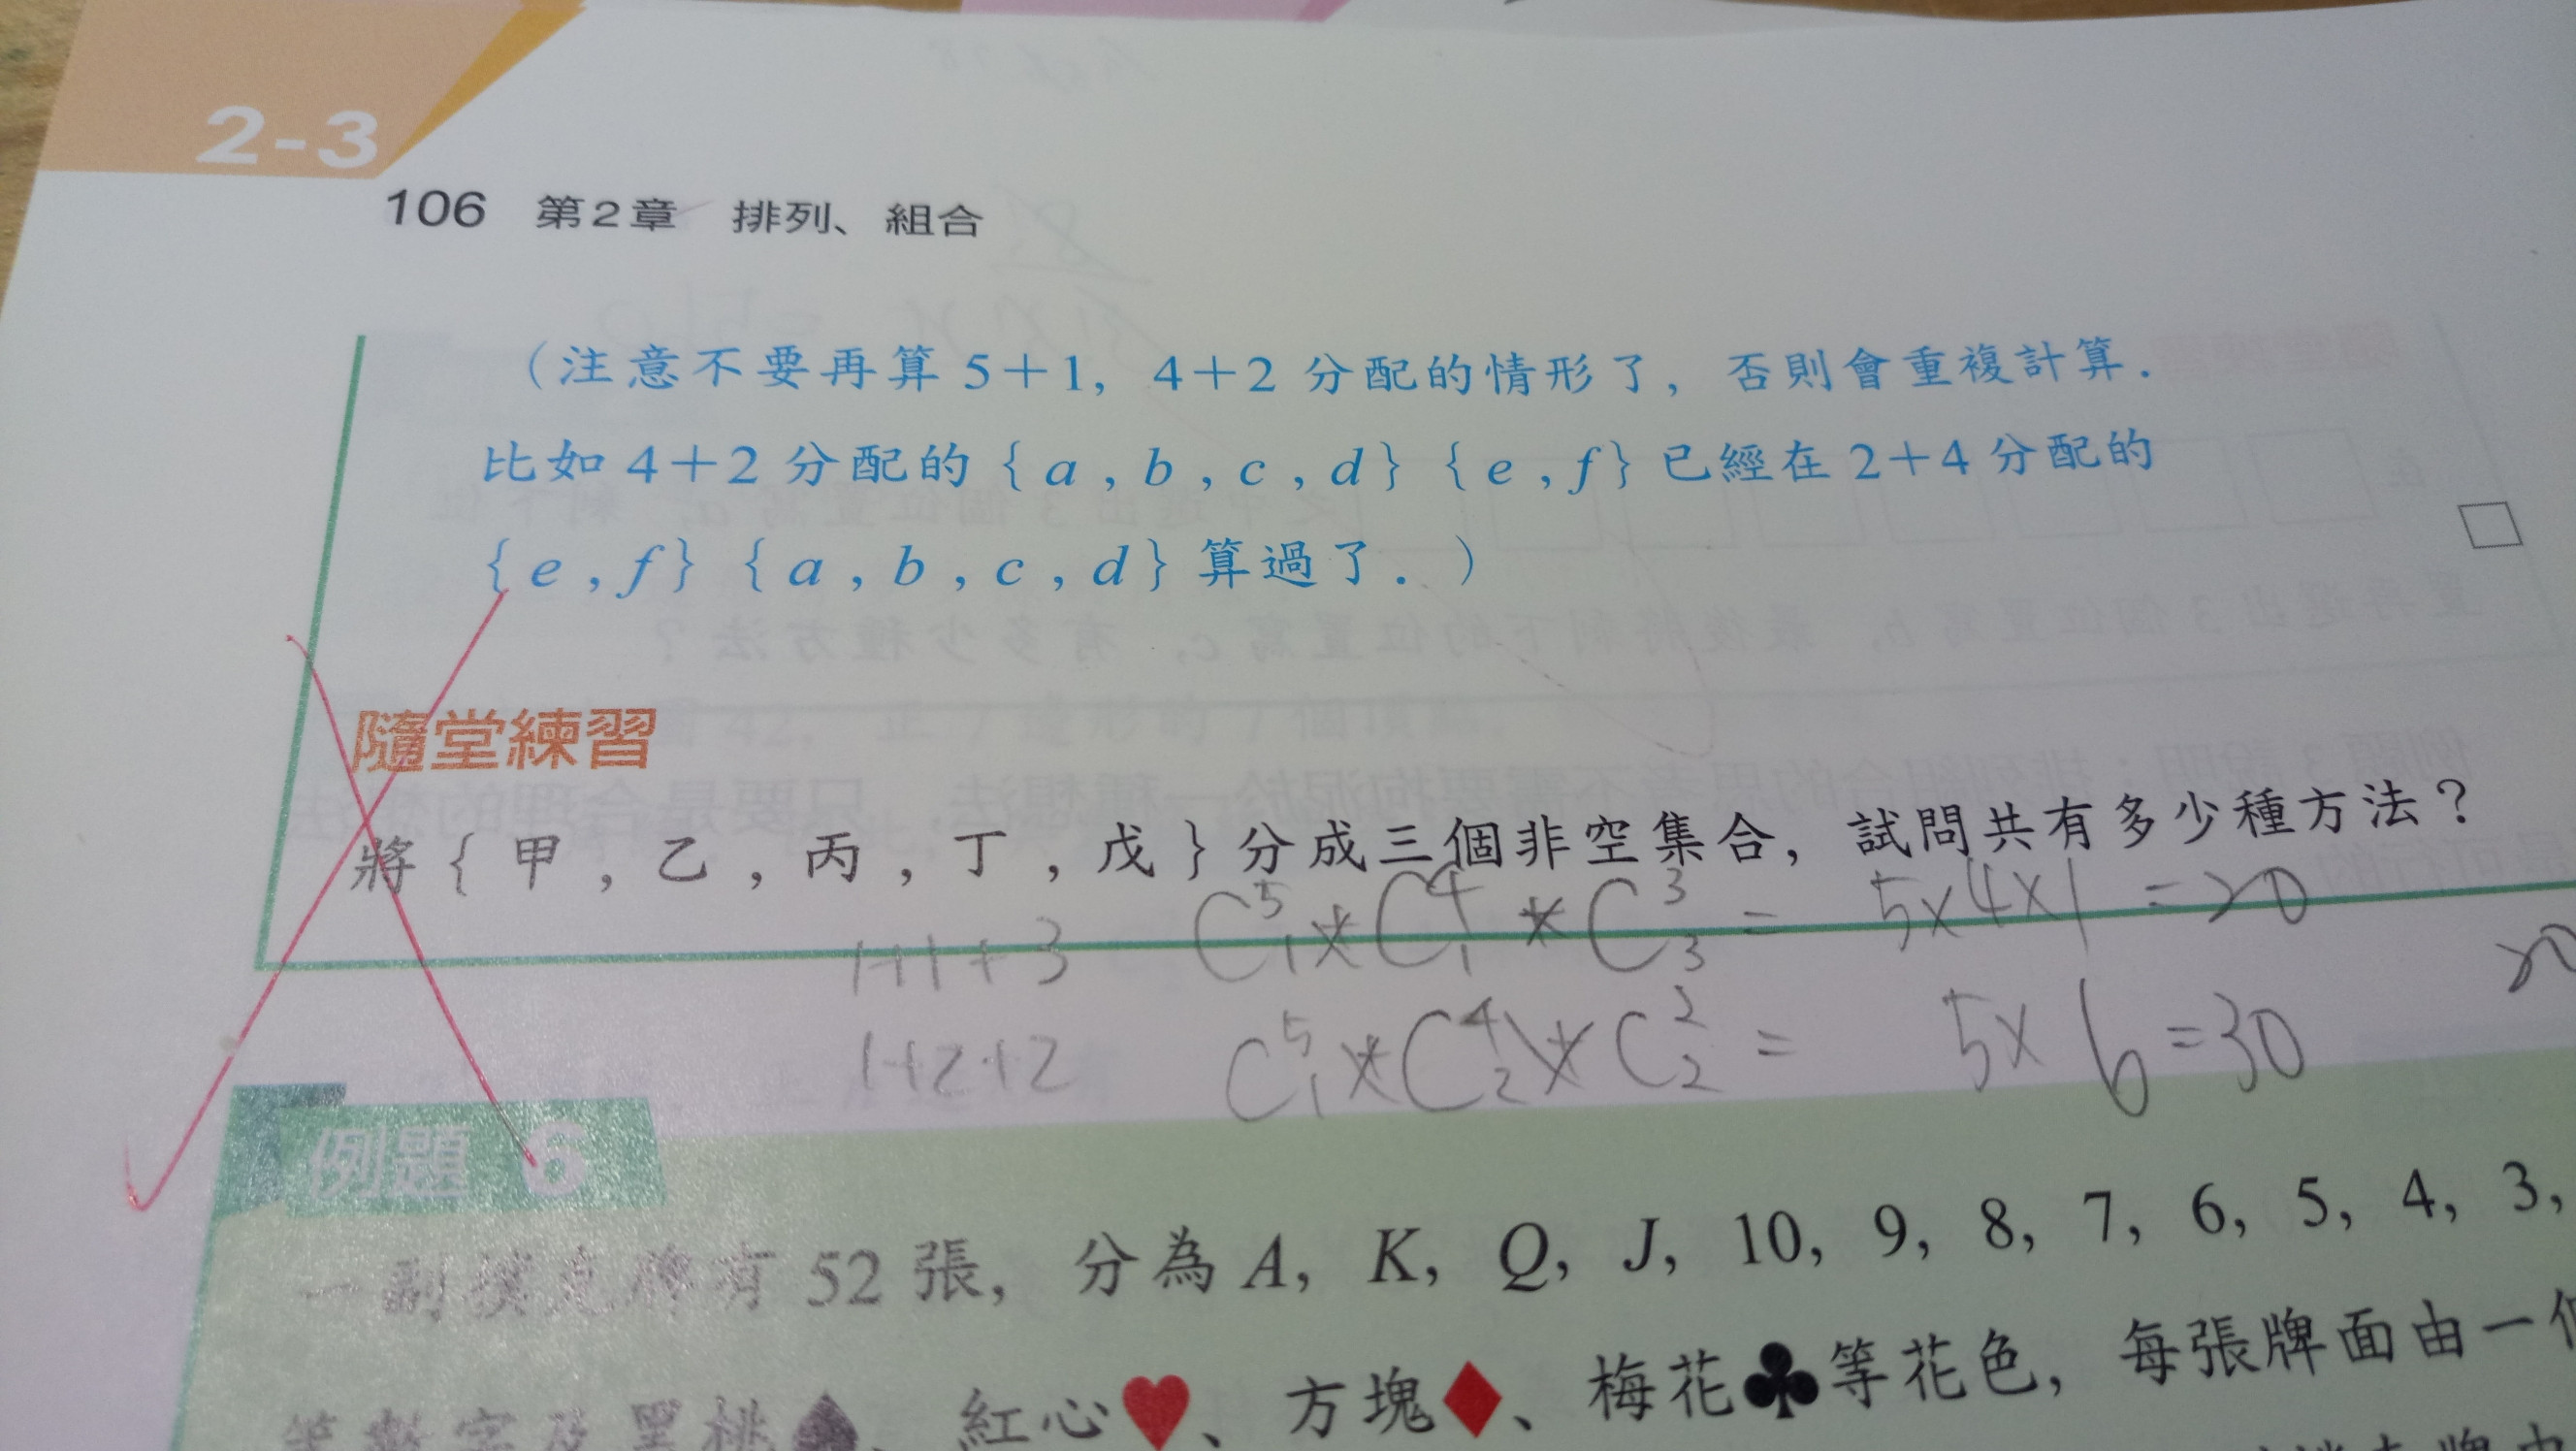 2-3
106 第2章 排列、組合
（注意不要再算 5+1, 4+2 分配的情形了, 否則會重複計算.
比如 4+2 分配的 {a , b , c , d} {e , f} 已經在 2+4 分配的
{e , f} {a , b , c , d} 算過了. ）
隨堂練習
將 { 甲 , 乙 , 丙 , 丁 , 戊 } 分成三個非空集合, 試問共有多少種方法？
1+1+3 C⁵₁ × C⁴₁ × C³₃ = 5×4×1 = 20
1+2+2 C⁵₁ × C⁴₂ × C²₂ = 5×6=30
例題 6
一副撲克牌有 52 張, 分為 A, K, Q, J, 10, 9, 8, 7, 6, 5, 4, 3,
等數字及黑桃♠、紅心♥、方塊♦、梅花♣等花色, 每張牌面由一